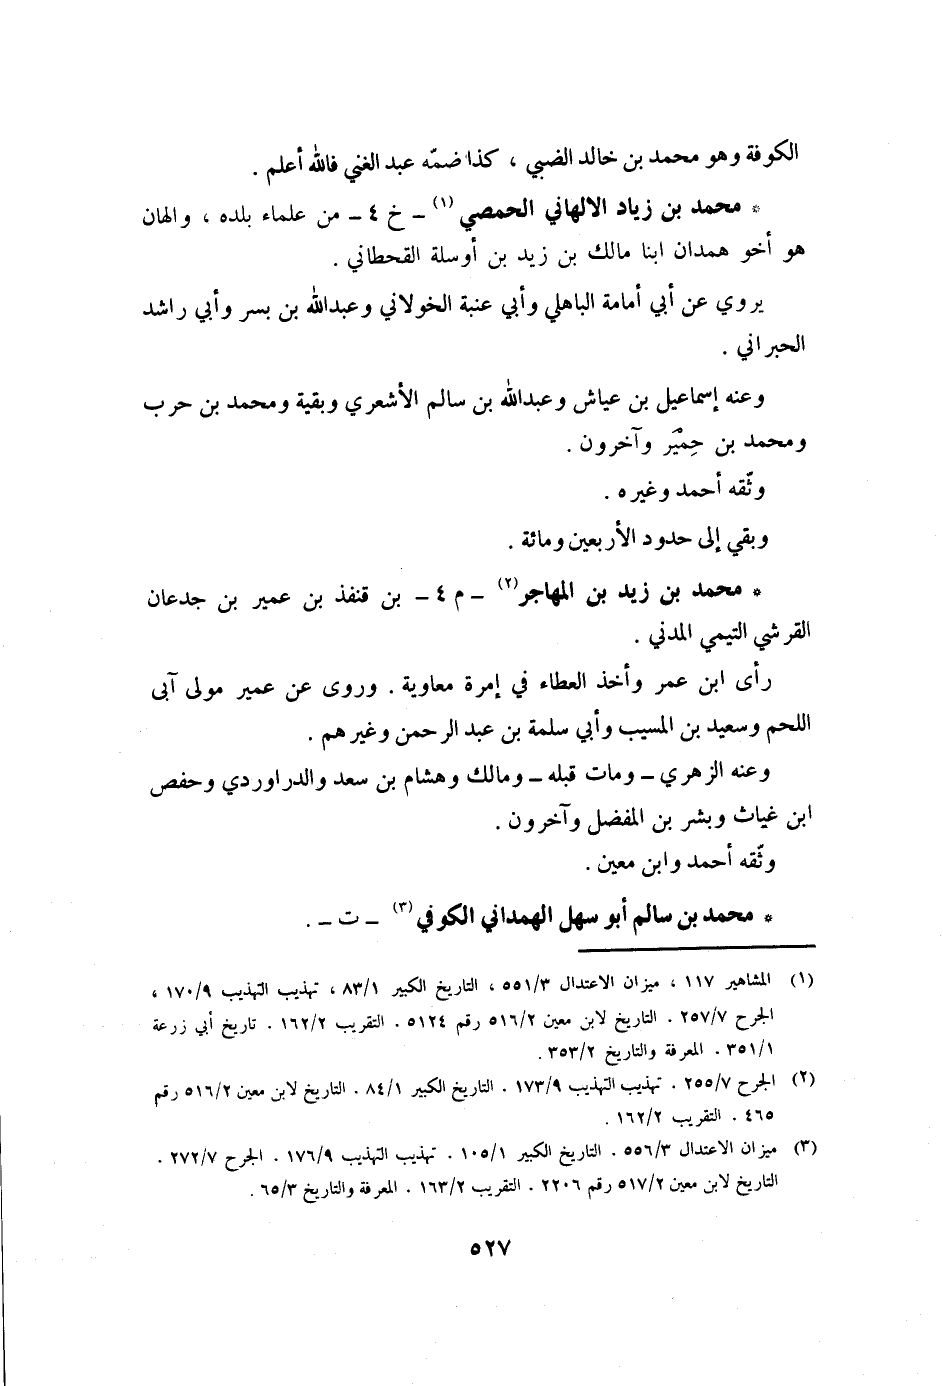 الكوفة وهو محمد بن خالد الضبي ، كذا ضمّه عبد الغني فالله أعلم .
* محمد بن زياد الالهاني الحمصي (١) ــ خ ٤ ــ من علماء بلده ، والهان
هو أخو همدان ابنا مالك بن زيد بن أوسلة القحطاني .
يروي عن أبي أمامة الباهلي وأبي عنبة الخولاني وعبدالله بن بسر وأبي راشد
الحبراني .
وعنه إسماعيل بن عياش وعبدالله بن سالم الأشعري وبقية ومحمد بن حرب
ومحمد بن حِمْيَر وآخرون .
وثّقه أحمد وغيره .
وبقي إلى حدود الأربعين ومائة .
* محمد بن زيد بن المهاجر(٢) ــ م ٤ ــ بن قنفذ بن عمير بن جدعان
القرشي التيمي المدني .
رأى ابن عمر وأخذ العطاء في إمرة معاوية . وروى عن عمير مولى آبى
اللحم وسعيد بن المسيب وأبي سلمة بن عبد الرحمن وغيرهم .
وعنه الزهري ــ ومات قبله ــ ومالك وهشام بن سعد والدراوردي وحفص
ابن غياث وبشر بن المفضل وآخرون .
وثّقه أحمد وابن معين .
* محمد بن سالم أبو سهل الهمداني الكوفي(٣) ــ ت ــ .
(١) المشاهير ١١٧ ، ميزان الاعتدال ٥٥١/٣ ، التاريخ الكبير ٨٣/١ ، تهذيب التهذيب ١٧٠/٩ ،
الجرح ٢٥٧/٧ . التاريخ لابن معين ٥١٦/٢ رقم ٥١٢٤ . التقريب ١٦٢/٢ . تاريخ أبي زرعة
٣٥١/١ . المعرفة والتاريخ ٣٥٣/٢ .
(٢) الجرح ٢٥٥/٧ . تهذيب التهذيب ١٧٣/٩ . التاريخ الكبير ٨٤/١ . التاريخ لابن معين ٥١٦/٢ رقم
٤٦٥ . التقريب ١٦٢/٢ .
(٣) ميزان الاعتدال ٥٥٦/٣ . التاريخ الكبير ١٠٥/١ . تهذيب التهذيب ١٧٦/٩ . الجرح ٢٧٢/٧ .
التاريخ لابن معين ٥١٧/٢ رقم ٢٢٠٦ . التقريب ١٦٣/٢ . المعرفة والتاريخ ٦٥/٣ .
٥٢٧